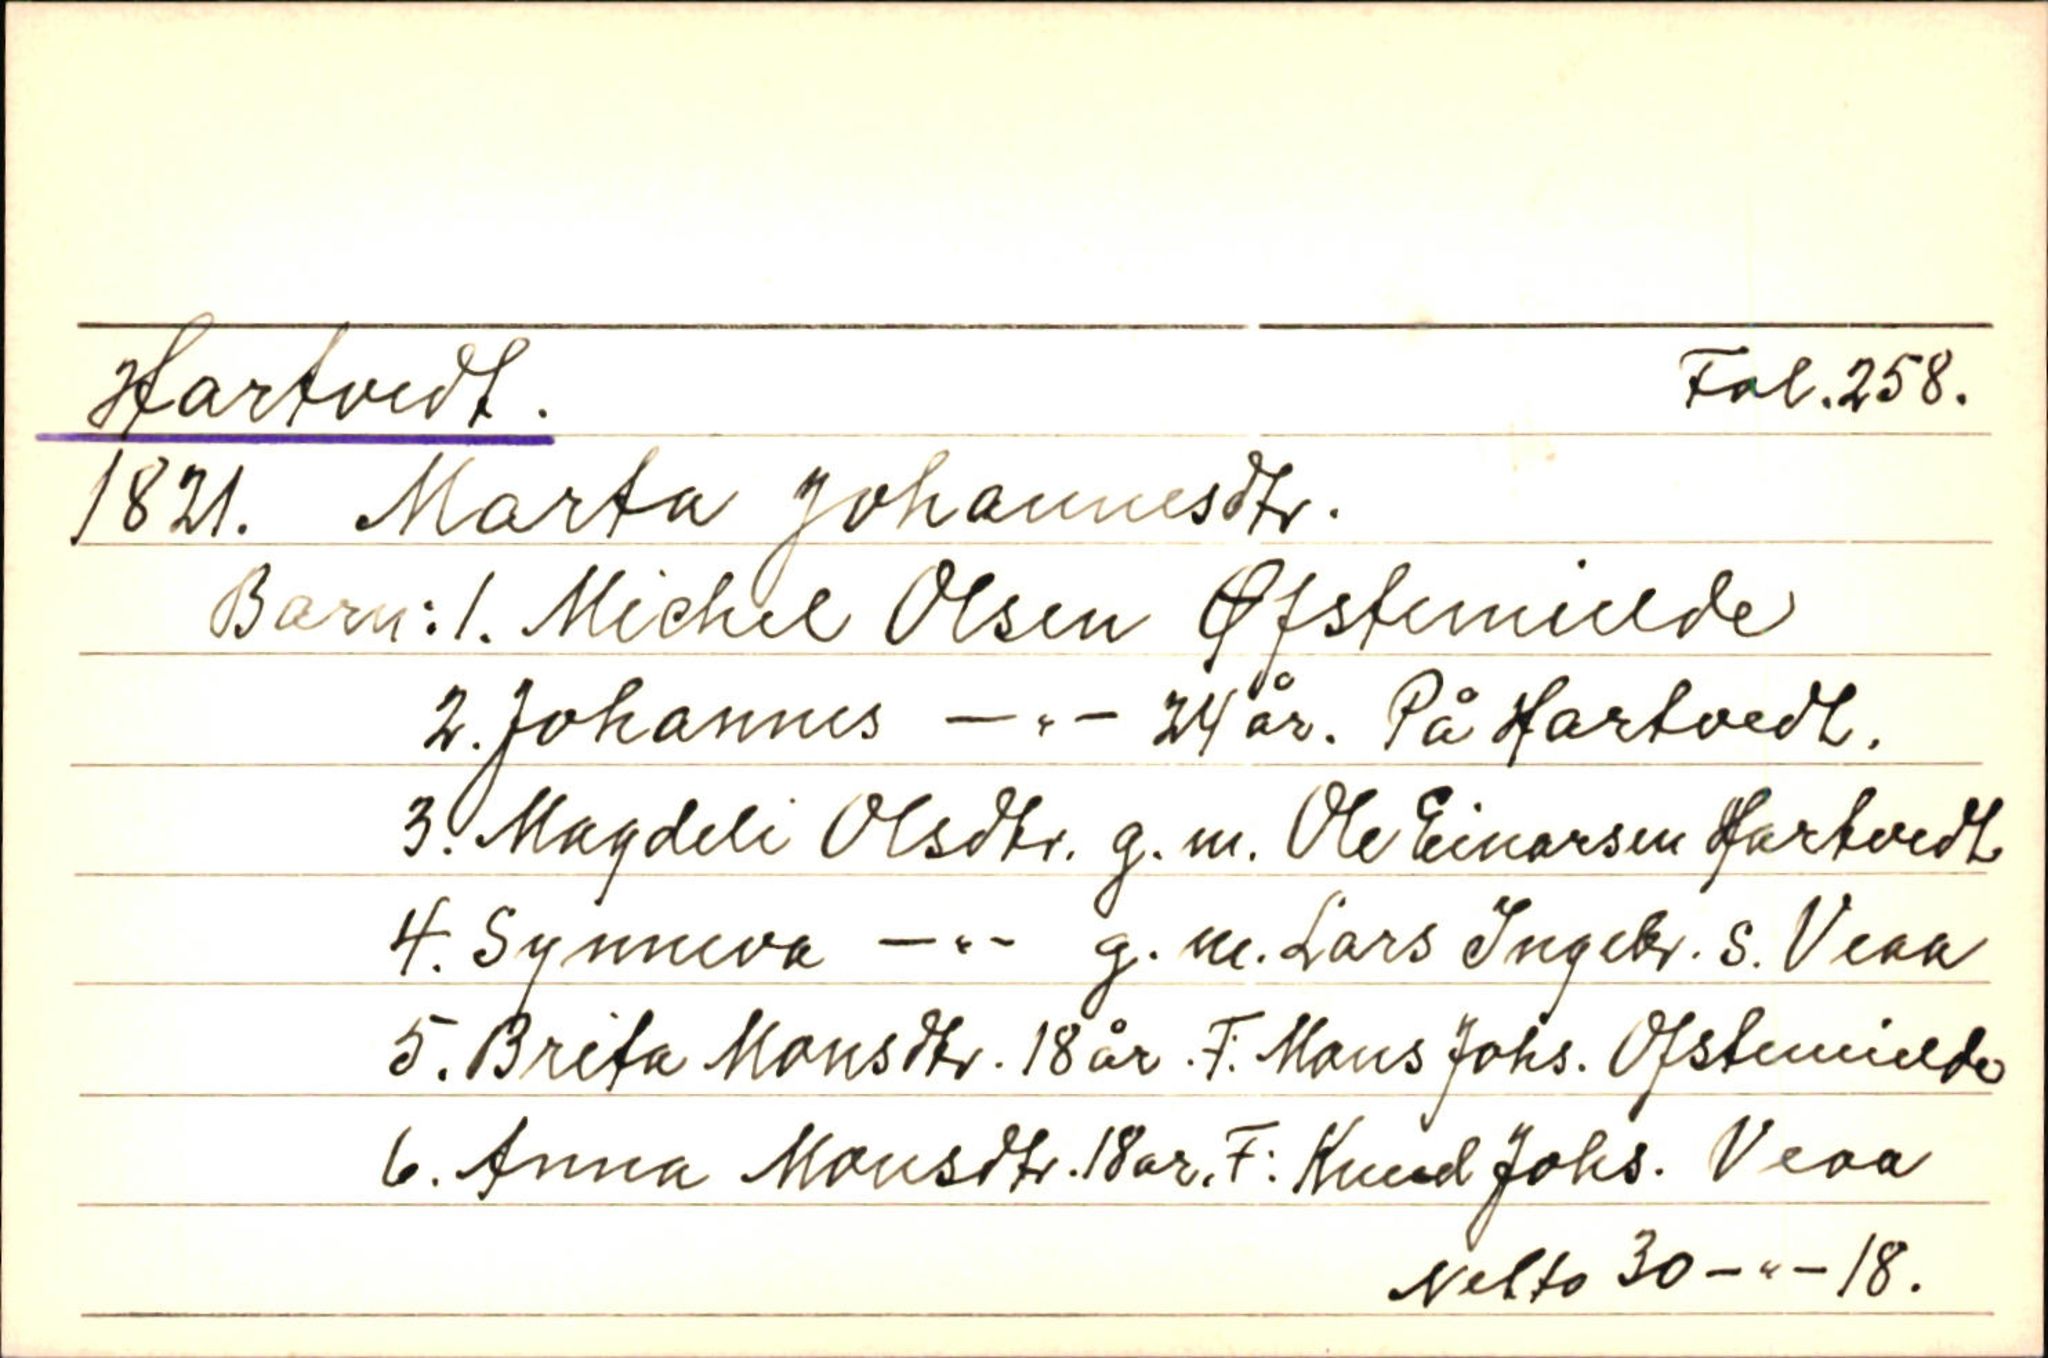 Hartvedt. Fol. 258.
1821. Marta Johannesdtr.
Barn: 1. Michel Olsen Øfstemielde
2. Johannes —"— 24 år. På Hartvedt.
3. Magdeli Olsdtr. g. m. Ole Einarsen Hartvedt
4. Synneva —"— g. m. Lars Ingebr. s. Veaa
5. Brita Monsdtr. 18 år. F. Mons Johs. Ofstemielde
6. Anna Monsdtr. 18 ar. F: Knud Johs. Veaa
Netto 30 —"— 18.